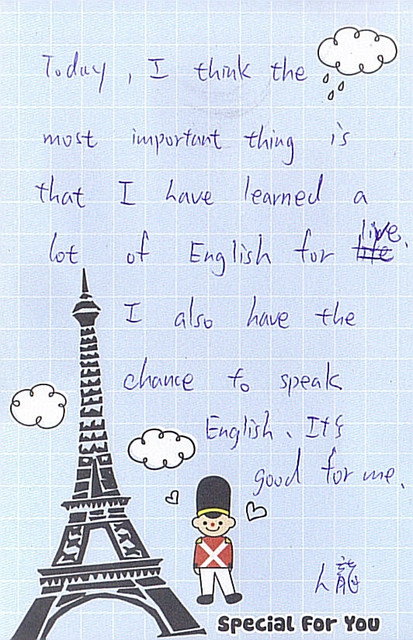 Today, I think the
most important thing is
that I have learned a
lot of English for live.
I also have the
chance to speak
English. It's
good for me.
龍
Special For You